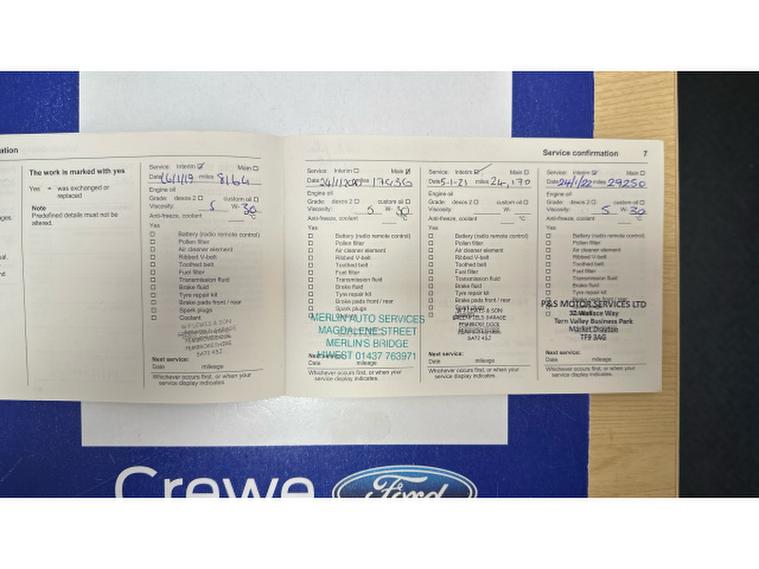 ation
The work is marked with yes
Yes = was exchanged or
replaced
Note
Predefined details must not be
altered.
Service: Interim Main
Date 16/1/19 miles 8164
Engine oil
Grade: dexos 2 custom oil
Viscosity: 5 W- 30
Anti-freeze, coolant °C
Yes
Battery (radio remote control)
Pollen filter
Air cleaner element
Ribbed V-belt
Toothed belt
Fuel filter
Transmission fluid
Brake fluid
Tyre repair kit
Brake pads front / rear
Spark plugs
Coolant
W F LEWIS & SON
PEMBROKESHIRE
SA72 4SJ
Next service:
Date mileage
Whichever occurs first, or when your
service display indicates.
Service confirmation 7
Service: Interim Main
Date miles 17636
Engine oil
Grade: dexos 2 custom oil
Viscosity: 5 W- 30
Anti-freeze, coolant °C
Yes
Battery (radio remote control)
Pollen filter
Air cleaner element
Ribbed V-belt
Toothed belt
Fuel filter
Transmission fluid
Brake fluid
Tyre repair kit
Brake pads front / rear
Spark plugs
MERLIN AUTO SERVICES
MAGDALENE STREET
MERLIN'S BRIDGE
H/WEST 01437 763971
Next service:
Date mileage
Whichever occurs first, or when your
service display indicates.
Service: Interim Main
Date 5-1-21 miles 24,170
Engine oil
Grade: dexos 2 custom oil
Viscosity: W-
Anti-freeze, coolant °C
Yes
Battery (radio remote control)
Pollen filter
Air cleaner element
Ribbed V-belt
Toothed belt
Fuel filter
Transmission fluid
Brake fluid
Tyre repair kit
Brake pads front / rear
Spark plugs
W F LEWIS & SON
PEMBROKE DOCK
PEMBROKESHIRE
SA72 4SJ
Next service:
Date mileage
Whichever occurs first, or when your
service display indicates.
Service: Interim Main
Date 24/1/22 miles 29250
Engine oil
Grade: dexos 2 custom oil
Viscosity: 5 W- 30
Anti-freeze, coolant °C
Yes
Battery (radio remote control)
Pollen filter
Air cleaner element
Ribbed V-belt
Toothed belt
Fuel filter
Transmission fluid
Brake fluid
Tyre repair kit
Brake pads front / rear
P&S MOTOR SERVICES LTD
32 Wallace Way
Tern Valley Business Park
Market Drayton
TF9 3AG
Next service:
Date mileage
Whichever occurs first, or when your
service display indicates.
Crewe Ford